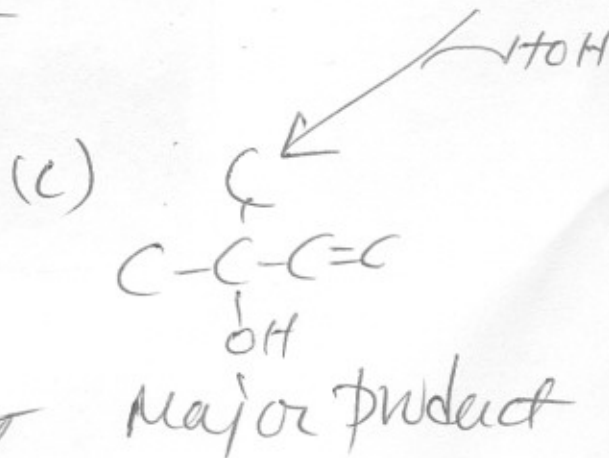 HOH
(c)
C
C-C-C=C
OH
Major product